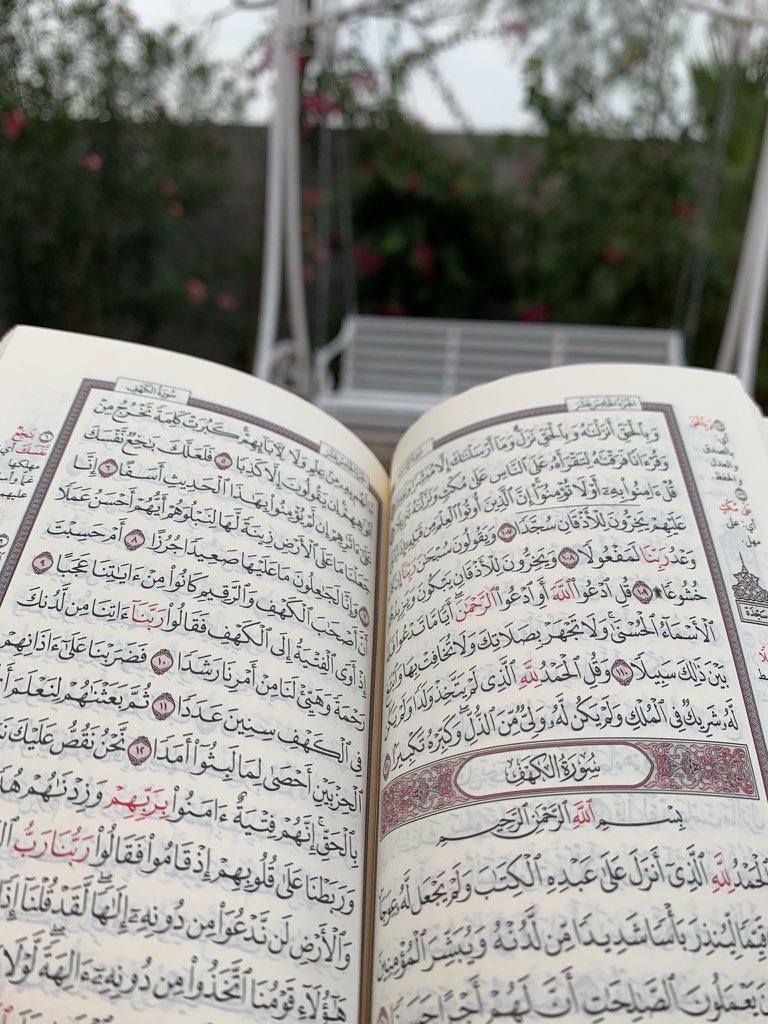 الجزء الخامس عشر
وَبِٱلْحَقِّ أَنزَلْنَٰهُ وَبِٱلْحَقِّ نَزَلَ وَمَآ أَرْسَلْنَٰكَ إِلَّا مُبَشِّرًا
وَقُرْءَانًا فَرَقْنَٰهُ لِتَقْرَأَهُۥ عَلَى ٱلنَّاسِ عَلَىٰ مُكْثٍ وَنَزَّلْنَٰهُ
قُلْ ءَامِنُوا۟ بِهِۦٓ أَوْ لَا تُؤْمِنُوٓا۟ إِنَّ ٱلَّذِينَ أُوتُوا۟ ٱلْعِلْمَ مِن قَبْلِهِۦٓ
عَلَيْهِمْ يَخِرُّونَ لِلْأَذْقَانِ سُجَّدًا ١٠٧ وَيَقُولُونَ سُبْحَٰنَ رَبِّنَآ
وَعْدُ رَبِّنَا لَمَفْعُولًا ١٠٨ وَيَخِرُّونَ لِلْأَذْقَانِ يَبْكُونَ وَيَزِيدُهُمْ
خُشُوعًا ١٠٩ قُلِ ٱدْعُوا۟ ٱللَّهَ أَوِ ٱدْعُوا۟ ٱلرَّحْمَٰنَ أَيًّا مَّا تَدْعُوا۟
ٱلْأَسْمَآءُ ٱلْحُسْنَىٰ وَلَا تَجْهَرْ بِصَلَاتِكَ وَلَا تُخَافِتْ بِهَا
بَيْنَ ذَٰلِكَ سَبِيلًا ١١٠ وَقُلِ ٱلْحَمْدُ لِلَّهِ ٱلَّذِى لَمْ يَتَّخِذْ وَلَدًا وَلَمْ يَكُن
لَّهُۥ شَرِيكٌ فِى ٱلْمُلْكِ وَلَمْ يَكُن لَّهُۥ وَلِىٌّ مِّنَ ٱلذُّلِّ وَكَبِّرْهُ تَكْبِيرًۢا
سُورَةُ الكَهْفِ
بِسْمِ ٱللَّهِ ٱلرَّحْمَٰنِ ٱلرَّحِيمِ
ٱلْحَمْدُ لِلَّهِ ٱلَّذِىٓ أَنزَلَ عَلَىٰ عَبْدِهِ ٱلْكِتَٰبَ وَلَمْ يَجْعَل لَّهُۥ عِوَجَا
قَيِّمًا لِّيُنذِرَ بَأْسًا شَدِيدًا مِّن لَّدُنْهُ وَيُبَشِّرَ ٱلْمُؤْمِنِينَ
يَعْمَلُونَ ٱلصَّٰلِحَٰتِ أَنَّ لَهُمْ أَجْرًا حَسَنًا
وبالحق
أي:
والعدل
على مكث
أي: على
سجدة
سورة الكهف
مَّا لَهُم بِهِۦ مِنْ عِلْمٍ وَلَا لِـَٔابَآئِهِمْ كَبُرَتْ كَلِمَةً تَخْرُجُ مِنْ
أَفْوَٰهِهِمْ إِن يَقُولُونَ إِلَّا كَذِبًا ٥ فَلَعَلَّكَ بَٰخِعٌ نَّفْسَكَ
عَلَىٰٓ ءَاثَٰرِهِمْ إِن لَّمْ يُؤْمِنُوا۟ بِهَٰذَا ٱلْحَدِيثِ أَسَفًا ٦ إِنَّا
جَعَلْنَا مَا عَلَى ٱلْأَرْضِ زِينَةً لَّهَا لِنَبْلُوَهُمْ أَيُّهُمْ أَحْسَنُ عَمَلًا
٧ وَإِنَّا لَجَٰعِلُونَ مَا عَلَيْهَا صَعِيدًا جُرُزًا ٨ أَمْ حَسِبْتَ
أَنَّ أَصْحَٰبَ ٱلْكَهْفِ وَٱلرَّقِيمِ كَانُوا۟ مِنْ ءَايَٰتِنَا عَجَبًا ٩
إِذْ أَوَى ٱلْفِتْيَةُ إِلَى ٱلْكَهْفِ فَقَالُوا۟ رَبَّنَآ ءَاتِنَا مِن لَّدُنكَ
رَحْمَةً وَهَيِّئْ لَنَا مِنْ أَمْرِنَا رَشَدًا ١٠ فَضَرَبْنَا عَلَىٰٓ ءَاذَانِهِمْ
فِى ٱلْكَهْفِ سِنِينَ عَدَدًا ١١ ثُمَّ بَعَثْنَٰهُمْ لِنَعْلَمَ أَىُّ
ٱلْحِزْبَيْنِ أَحْصَىٰ لِمَا لَبِثُوٓا۟ أَمَدًا ١٢ نَّحْنُ نَقُصُّ عَلَيْكَ
بِٱلْحَقِّ إِنَّهُمْ فِتْيَةٌ ءَامَنُوا۟ بِرَبِّهِمْ وَزِدْنَٰهُمْ هُدًى
وَرَبَطْنَا عَلَىٰ قُلُوبِهِمْ إِذْ قَامُوا۟ فَقَالُوا۟ رَبُّنَا رَبُّ
وَٱلْأَرْضِ لَن نَّدْعُوَا۟ مِن دُونِهِۦٓ إِلَٰهًا لَّقَدْ قُلْنَآ إِذًا
هَٰٓؤُلَآءِ قَوْمُنَا ٱتَّخَذُوا۟ مِن دُونِهِۦٓ ءَالِهَةً لَّوْلَا
بخع
نفسك أي:
مهلكها